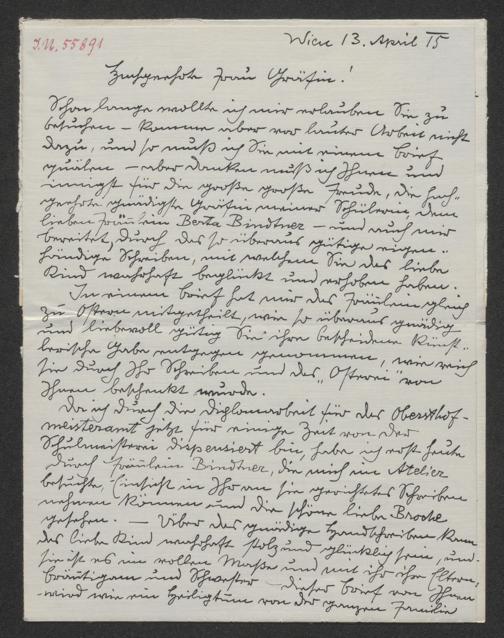 I.N. 55891
Wien 13. April 15
Hochgeehrte Frau Gräfin!
Schon lange wollte ich mir erlauben Sie zu
besuchen – komme aber vor lauter Arbeit nicht
dazu, und so muß ich Sie mit einem Brief
quälen – aber danken muß ich Ihnen und
innigst für die große große Freude, die hoch-
geehrte gnädigste Gräfin meiner Schülerin dem
lieben Fräulein Berta Bindtner – und auch mir
bereitet, durch das so überaus gütige eigen-
händige Schreiben, mit welchem Sie das liebe
Kind wahrhaft beglückt und erhoben haben.
In einem Brief hat mir das Fräulein gleich
zu Ostern mitgetheilt, wie so überaus gnädig
und liebevoll gütig Sie ihre bescheidene Künst-
lerische Gabe entgegen genommen, wie reich
sie durch Ihr Schreiben und das „Osterei" von
Ihnen beschenkt wurde.
Da ich durch die Diplomarbeit für das Obersthof-
meisteramt jetzt für einige Zeit von der
Schulmeisterei dispensiert bin, habe ich erst heute
durch Fräulein Bindtner, die mich im Atelier
besuchte, Einsicht in Ihr an sie gerichtetes Schreiben
nehmen können und die schöne liebe Broche
gesehen. — Über das gnädige Handschreiben kann
das liebe Kind wahrhaft stolz und glücklich sein, und
sie ist es im vollen Maße und mit ihr ihre Eltern,
Bräutigam und Schwester – dieser Brief von Ihnen
wird wie ein Heiligtum von der ganzen Familie